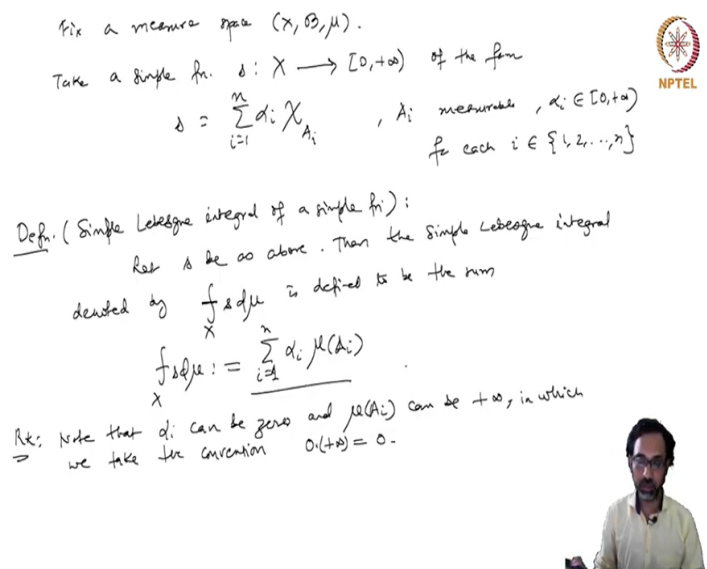 Fix a measure space (X, ℬ, μ).
NPTEL
Take a simple fn. s : X ⟶ [0, +∞) of the form
s = ∑_{i=1}^{n} α_i χ_{A_i} , A_i measurable, α_i ∈ [0, +∞)
for each i ∈ {1, 2, ..., n}
Defn. (Simple Lebesgue integral of a simple fn) :
Let s be as above. Then the simple Lebesgue integral
denoted by ⨍_X s dμ is defined to be the sum
⨍_X s dμ := ∑_{i=1}^{n} α_i μ(A_i)
Rk: Note that α_i can be zero and μ(A_i) can be +∞, in which
we take the convention 0.(+∞) = 0.